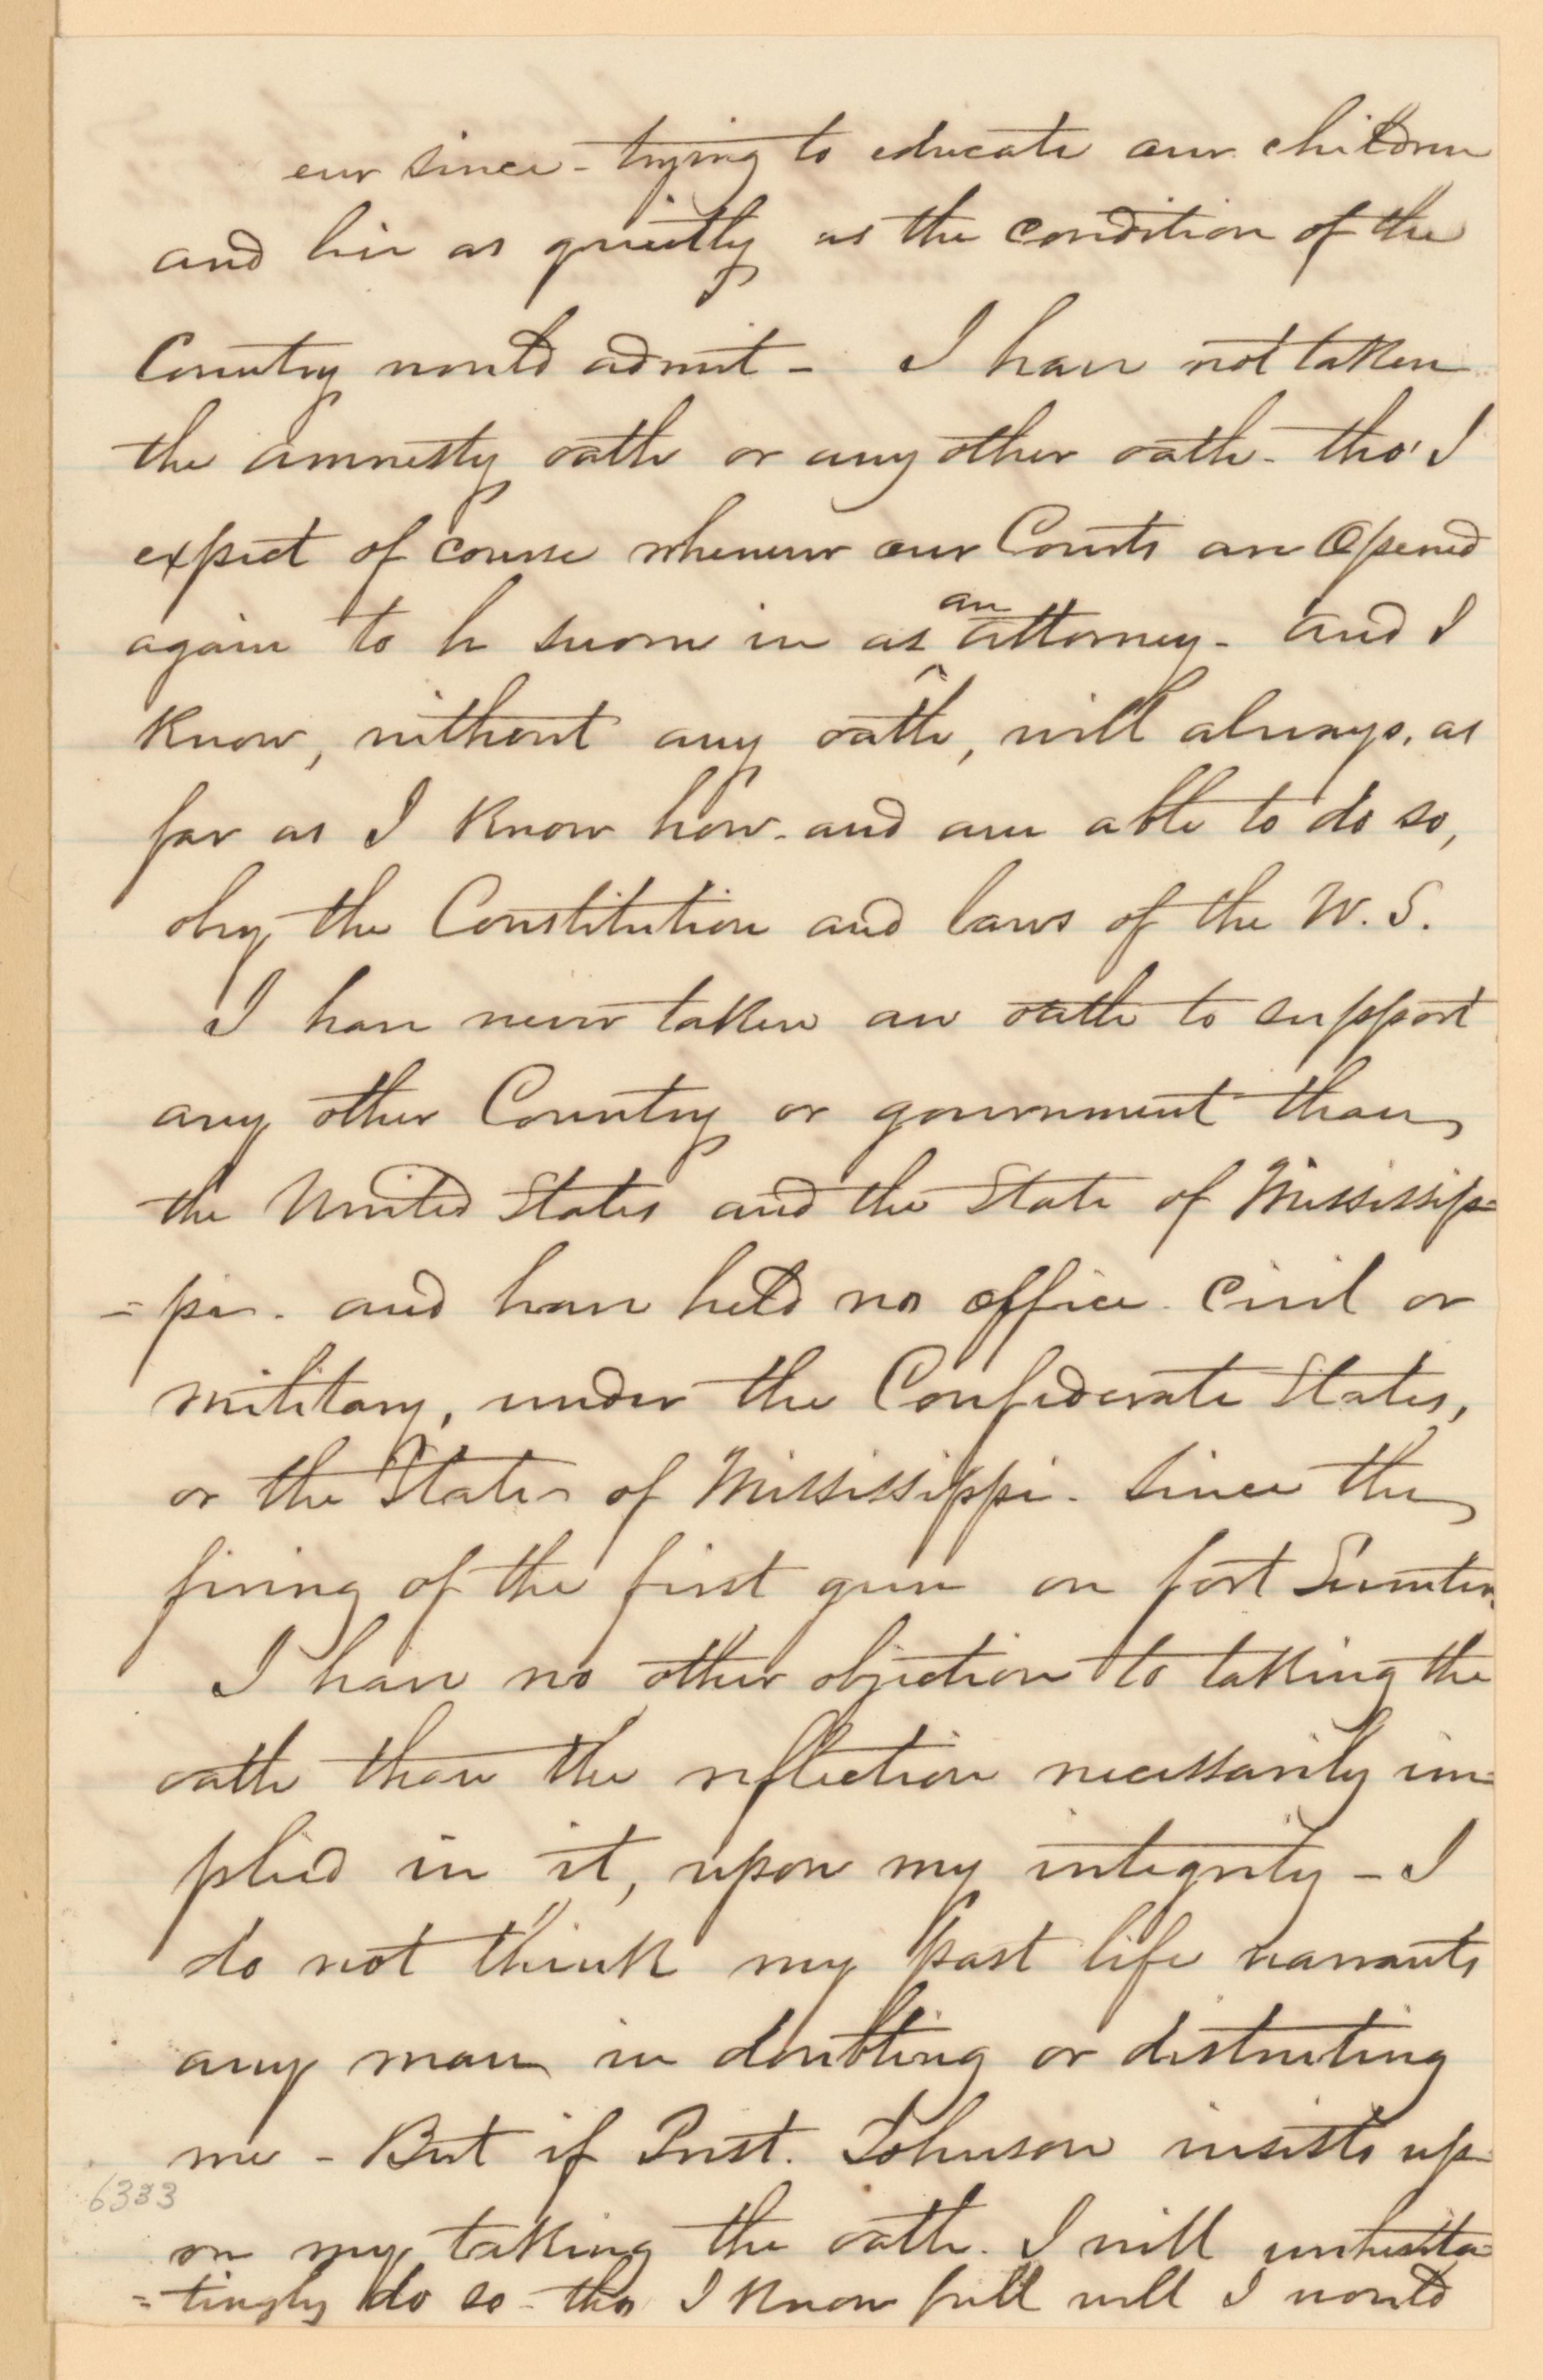 ever since - trying to educate our children
and live as quietly as the condition of the
Country would admit - I have not taken
the amnesty oath or any other oath - tho' I
expect of course whenever our Courts are opened
again to be sworn in as ^an attorney - and I
know, without any oath, will always, as
far as I know how - and am able to do so,
obey the Constitution and laws of the U. S.
I have never taken an oath to support
any other Country or government than
the United States and the State of Mississip=
=pi. and have held no office civil or
military, under the Confederate States,
or the State of Mississippi - since the
firing of the first gun on fort Sumter.
I have no other objection to taking the
oath than the reflection necessarily im=
plied in it, upon my integrity - I
do not think my past life warrants
any man in doubting or distrusting
me - But if Prest. Johnson insists up-
on my taking the oath. I will unhesita=
=tingly do so - tho I know full well I would
6333